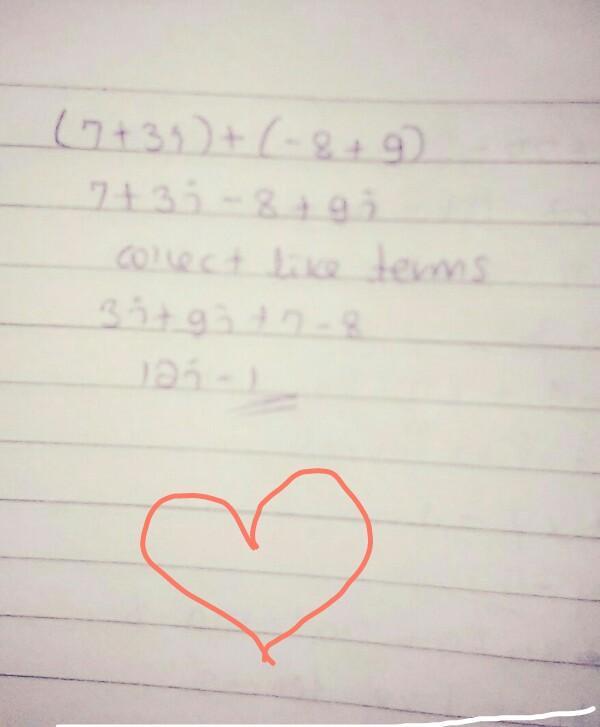 (7+3i)+(-8+9)
7+3i-8+9i
collect like terms
3i+9i+7-8
12i-1